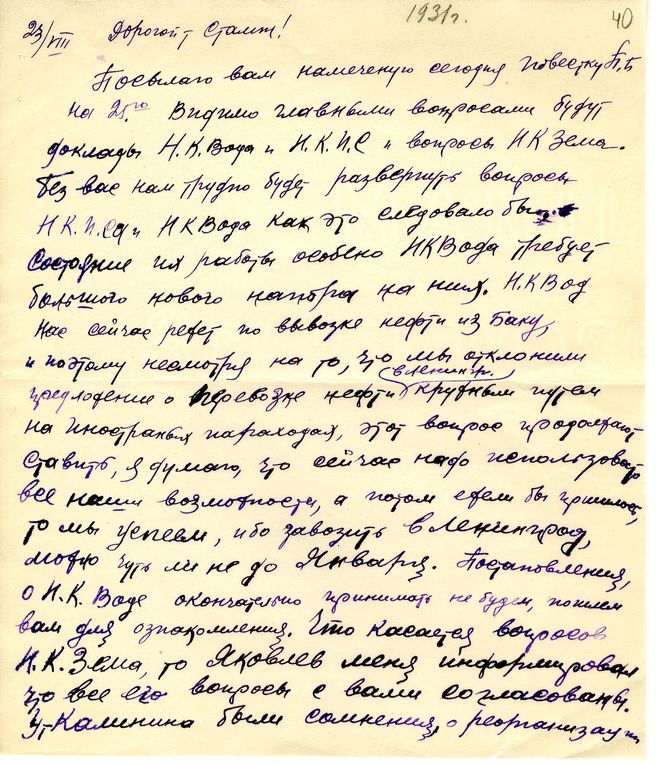 1931г. 40
23/VIII Дорогой т Сталин!
Посылаю вам намеченую сегодня повестку П.Б
на 25го. Видимо главными вопросами будут
доклады Н.К.Вода и Н.К.П.С и вопросы НКЗема.
Без вас нам трудно будет развернуть вопросы
НК.П.Са и НКВода как это следовало бы.
Состояние их работы особено НКВода требует
большого нового напора на них. Н.К Вод
нас сейчас режет по вывозке нефти из Баку,
и поэтому несмотря на то, что мы отклонили
предложение о перевозке нефти в Ленингр. кружным путем
на иностраных пароходах, этот вопрос продолжают
ставить, я думаю, что сейчас надо использовать
все наши возможности, а потом если бы пришлось,
то мы успеем, ибо завозить в Ленинград,
можно чуть ли не до Января. Постановления,
о Н.К. Воде окончательно принимать не будем, пошлем
вам для ознакомления. Что касается вопросов
Н.К.Зема, то Яковлев меня информировал
что все его вопросы с вами согласованы.
У т Калинина были сомнения, о реорганизации